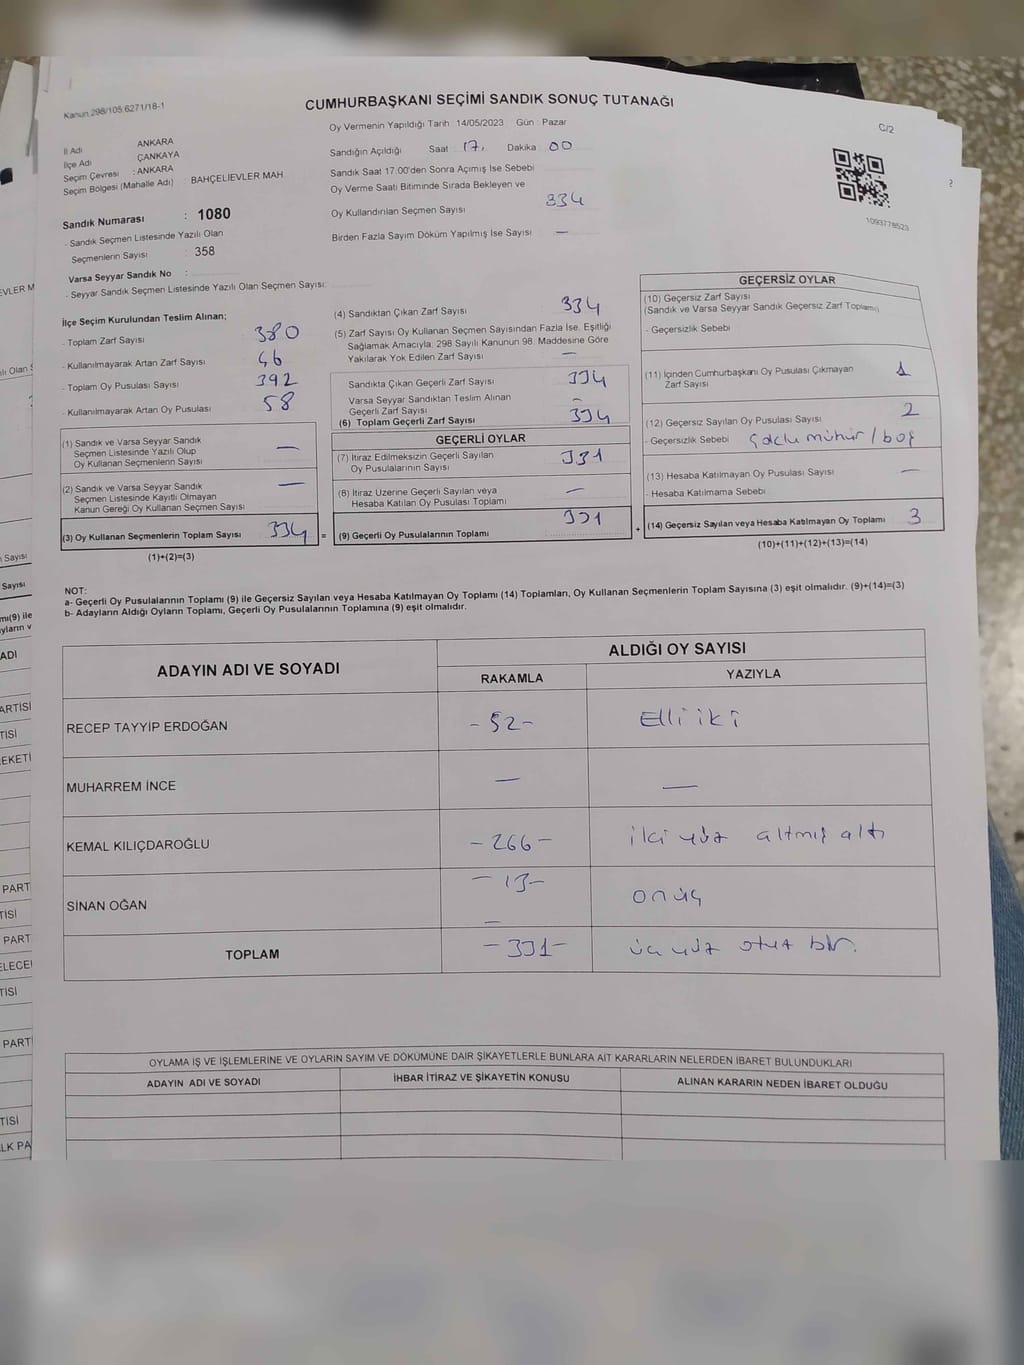 Kanun 298/105;6271/18-1
CUMHURBAŞKANI SEÇİMİ SANDIK SONUÇ TUTANAĞI
C/2
İl Adı ANKARA
İlçe Adı ÇANKAYA
Seçim Çevresi : ANKARA
Seçim Bölgesi (Mahalle Adı) : BAHÇELİEVLER MAH
Sandık Numarası : 1080
- Sandık Seçmen Listesinde Yazılı Olan
Seçmenlerin Sayısı : 358
Varsa Seyyar Sandık No :
- Seyyar Sandık Seçmen Listesinde Yazılı Olan Seçmen Sayısı:
Oy Vermenin Yapıldığı Tarih 14/05/2023 Gün : Pazar
Sandığın Açıldığı Saat 17. Dakika 00
Sandık Saat 17:00'den Sonra Açımış İse Sebebi
Oy Verme Saati Bitiminde Sırada Bekleyen ve
Oy Kullandırılan Seçmen Sayısı 334
Birden Fazla Sayım Döküm Yapılmış İse Sayısı —
1093778523
?
İlçe Seçim Kurulundan Teslim Alınan;
- Toplam Zarf Sayısı 380
- Kullanılmayarak Artan Zarf Sayısı 46
- Toplam Oy Pusulası Sayısı 392
- Kullanılmayarak Artan Oy Pusulası 58
(1) Sandık ve Varsa Seyyar Sandık
Seçmen Listesinde Yazılı Olup
Oy Kullanan Seçmenlerin Sayısı —
(2) Sandık ve Varsa Seyyar Sandık
Seçmen Listesinde Kayıtlı Olmayan
Kanun Gereği Oy Kullanan Seçmen Sayısı —
(3) Oy Kullanan Seçmenlerin Toplam Sayısı 334
(1)+(2)=(3)
=
(4) Sandıktan Çıkan Zarf Sayısı 334
(5) Zarf Sayısı Oy Kullanan Seçmen Sayısından Fazla İse, Eşitliği
Sağlamak Amacıyla; 298 Sayılı Kanunun 98. Maddesine Göre
Yakılarak Yok Edilen Zarf Sayısı —
Sandıkta Çıkan Geçerli Zarf Sayısı 334
Varsa Seyyar Sandıktan Teslim Alınan
Geçerli Zarf Sayısı —
(6) Toplam Geçerli Zarf Sayısı 334
GEÇERLİ OYLAR
(7) İtiraz Edilmeksizin Geçerli Sayılan
Oy Pusulalarının Sayısı 331
(8) İtiraz Üzerine Geçerli Sayılan veya
Hesaba Katılan Oy Pusulası Toplamı —
(9) Geçerli Oy Pusulalarının Toplamı 331
+
GEÇERSİZ OYLAR
(10) Geçersiz Zarf Sayısı
(Sandık ve Varsa Seyyar Sandık Geçersiz Zarf Toplamı)
- Geçersizlik Sebebi
(11) İçinden Cumhurbaşkanı Oy Pusulası Çıkmayan
Zarf Sayısı 1
(12) Geçersiz Sayılan Oy Pusulası Sayısı 2
- Geçersizlik Sebebi Çoklu mühür / boş
(13) Hesaba Katılmayan Oy Pusulası Sayısı —
- Hesaba Katılmama Sebebi
(14) Geçersiz Sayılan veya Hesaba Katılmayan Oy Toplamı 3
(10)+(11)+(12)+(13)=(14)
NOT:
a- Geçerli Oy Pusulalarının Toplamı (9) ile Geçersiz Sayılan veya Hesaba Katılmayan Oy Toplamı (14) Toplamları, Oy Kullanan Seçmenlerin Toplam Sayısına (3) eşit olmalıdır. (9)+(14)=(3)
b- Adayların Aldığı Oyların Toplamı, Geçerli Oy Pusulalarının Toplamına (9) eşit olmalıdır.
ADAYIN ADI VE SOYADI
ALDIĞI OY SAYISI
RAKAMLA YAZIYLA
RECEP TAYYİP ERDOĞAN -52- Elli iki
MUHARREM İNCE — —
KEMAL KILIÇDAROĞLU -266- iki yüz altmış altı
SİNAN OĞAN -13- onüç
TOPLAM -331- üç yüz otuz bir.
OYLAMA İŞ VE İŞLEMLERİNE VE OYLARIN SAYIM VE DÖKÜMÜNE DAİR ŞİKAYETLERLE BUNLARA AİT KARARLARIN NELERDEN İBARET BULUNDUKLARI
ADAYIN ADI VE SOYADI İHBAR İTİRAZ VE ŞİKAYETİN KONUSU ALINAN KARARIN NEDEN İBARET OLDUĞU